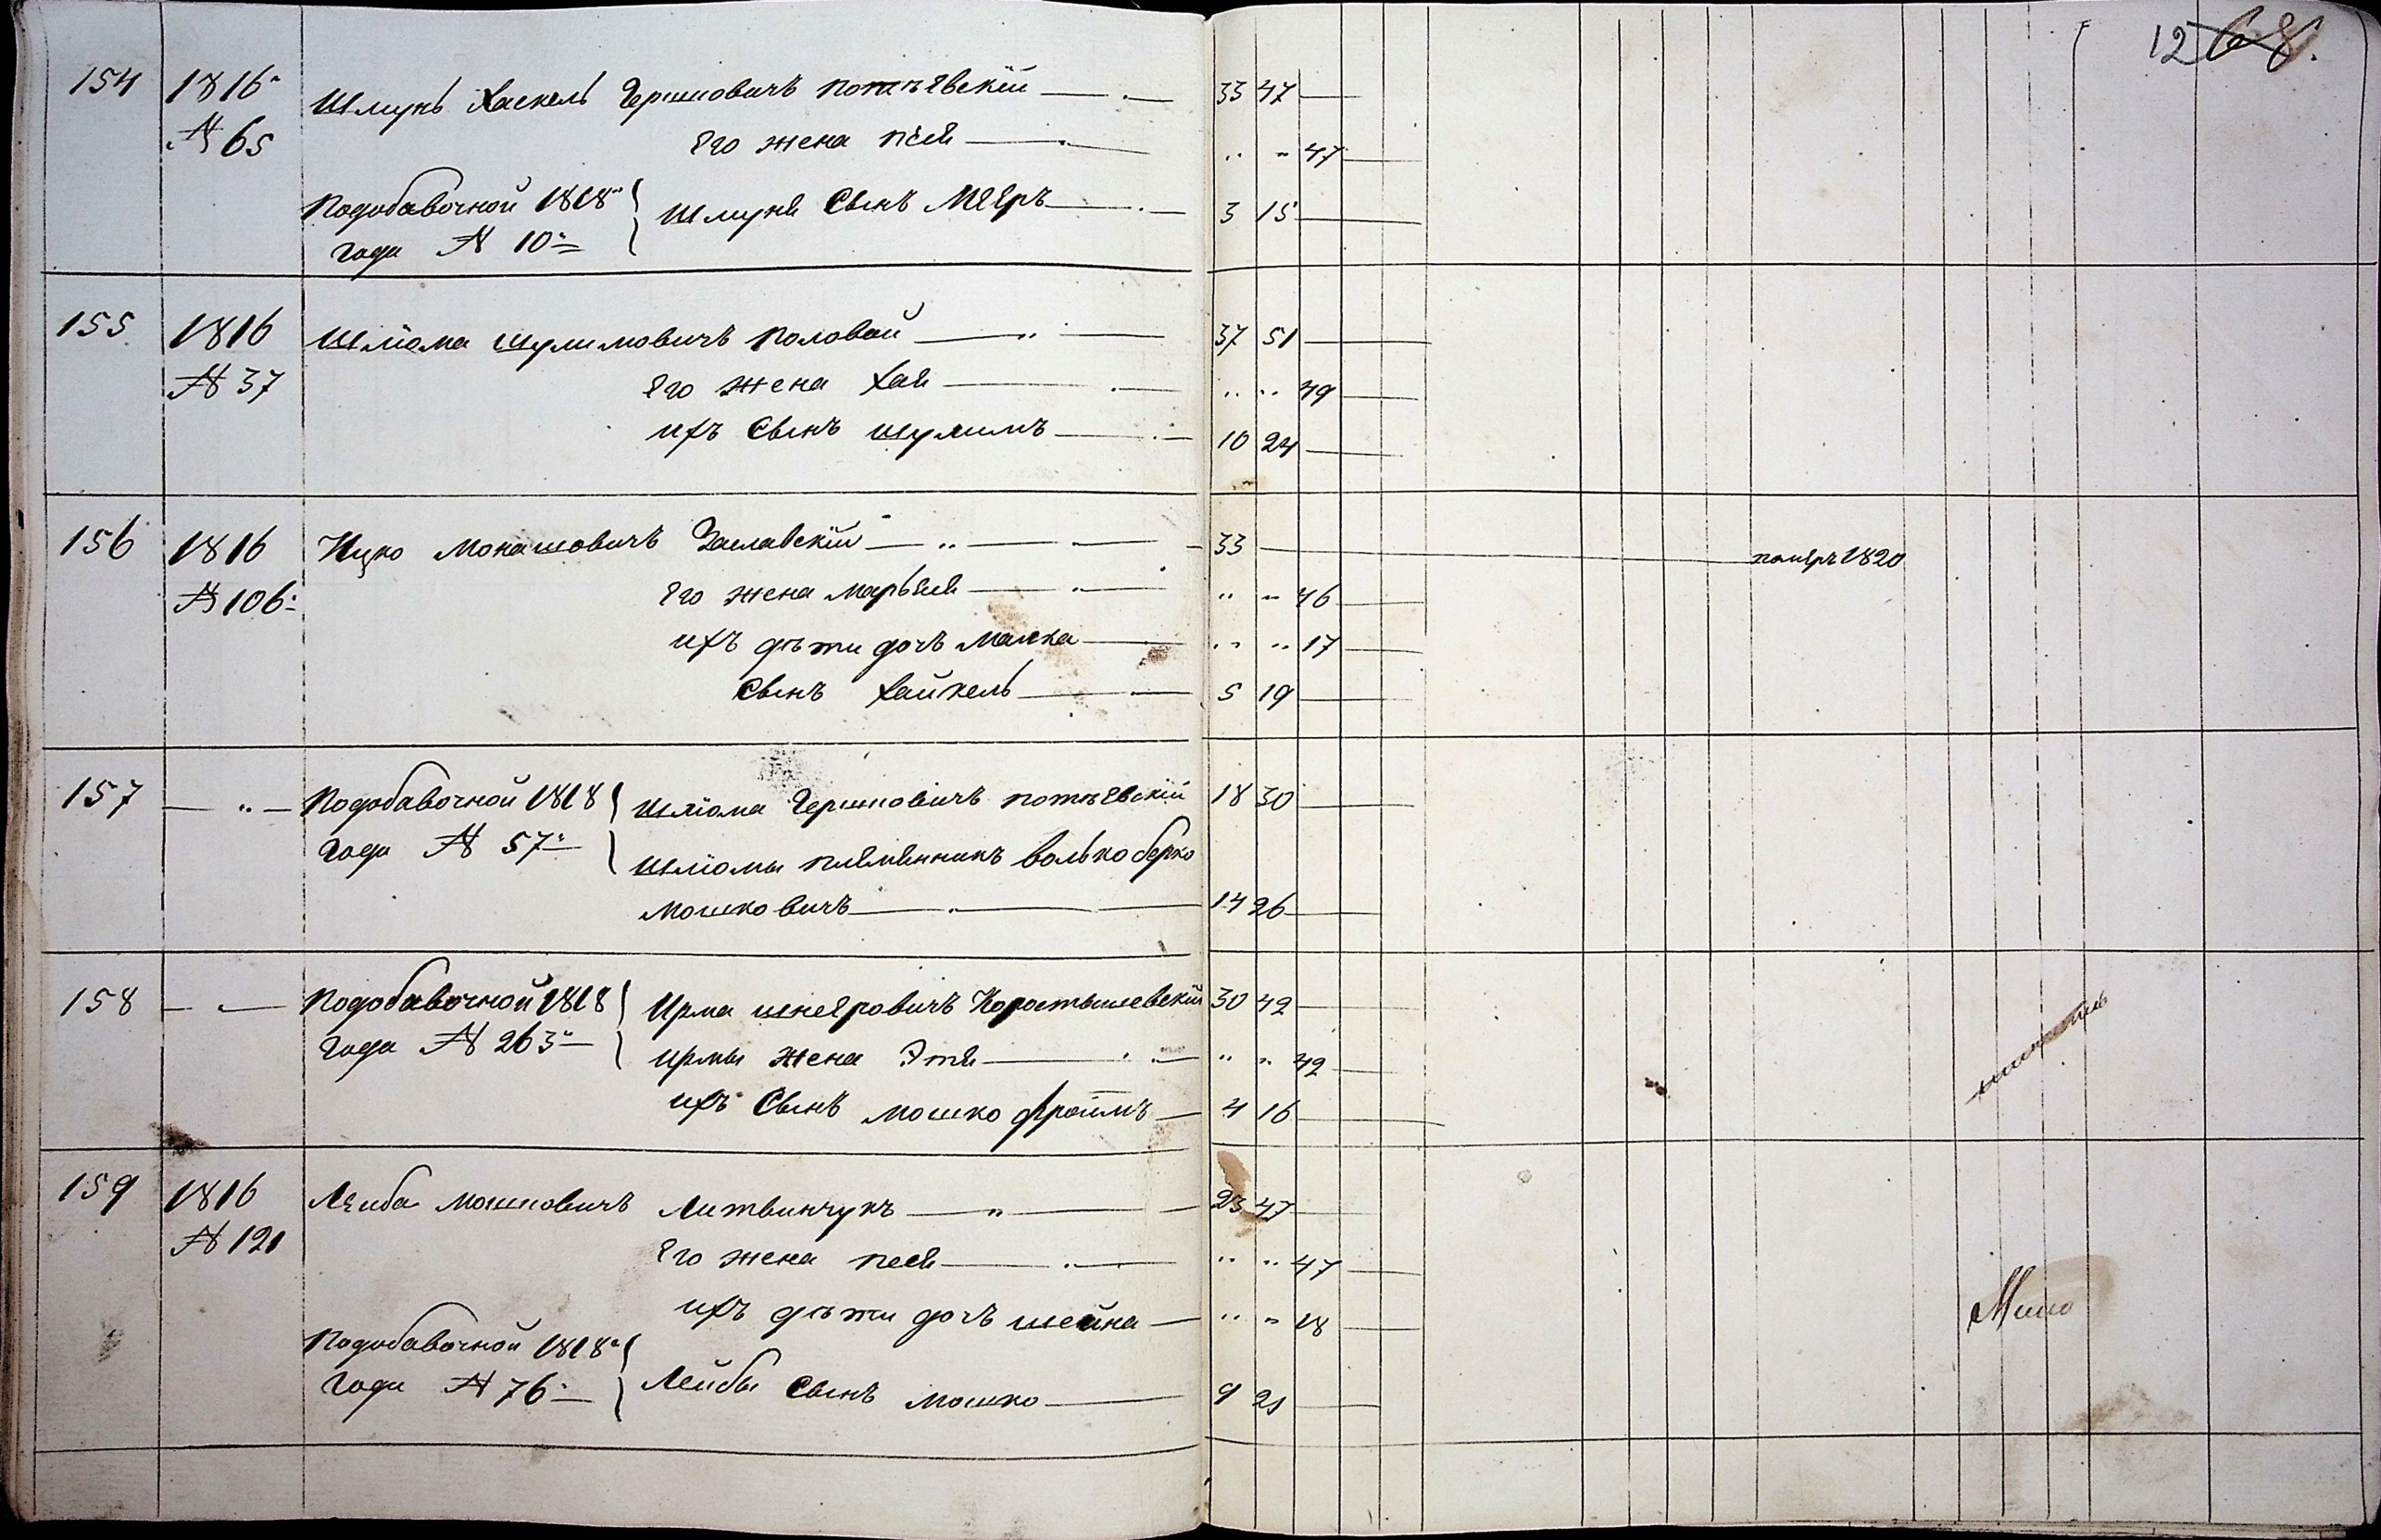 12
154 1816 Шмунь Хаскель Гершковичъ Потіевскій 33 47
№ 65 его жена Песя „ „ 47
Подобавочной 1818 Шмуня сынъ Мееръ 3 15
года № 10
155 1816 Шліома Шулимовичъ Половой 37 51
№ 37 его жена Хая „ „ 49
ихъ сынъ Шулимъ 10 24
156 1816 Ицко Монашовичъ Заславскій 33 померъ 1820
№ 106 его жена Марьяся „ „ 46
ихъ дѣти дочь Малка „ „ 17
сынъ Хайкель 5 19
157 „ Подобавочной 1818 Шліома Гершковичъ Потіевскій 18 30
года № 57 Шліомы племенникъ Волько Берко
Мошковичъ 14 26
158 „ Подобавочной 1818 Ирма Шнееровичъ Коростышевскій 30 42
года № 263 Ирмы жена Этя „ „ 42
ихъ сынъ Мошко Фроимъ 4 16
159 1816 Лейба Мошковичъ Литвинчукъ 23 47
№ 121 его жена Песя „ „ 47
ихъ дѣти дочь Шейна „ „ 18
Подобавочной 1818
года № 76 Лейбы сынъ Мошко 9 21